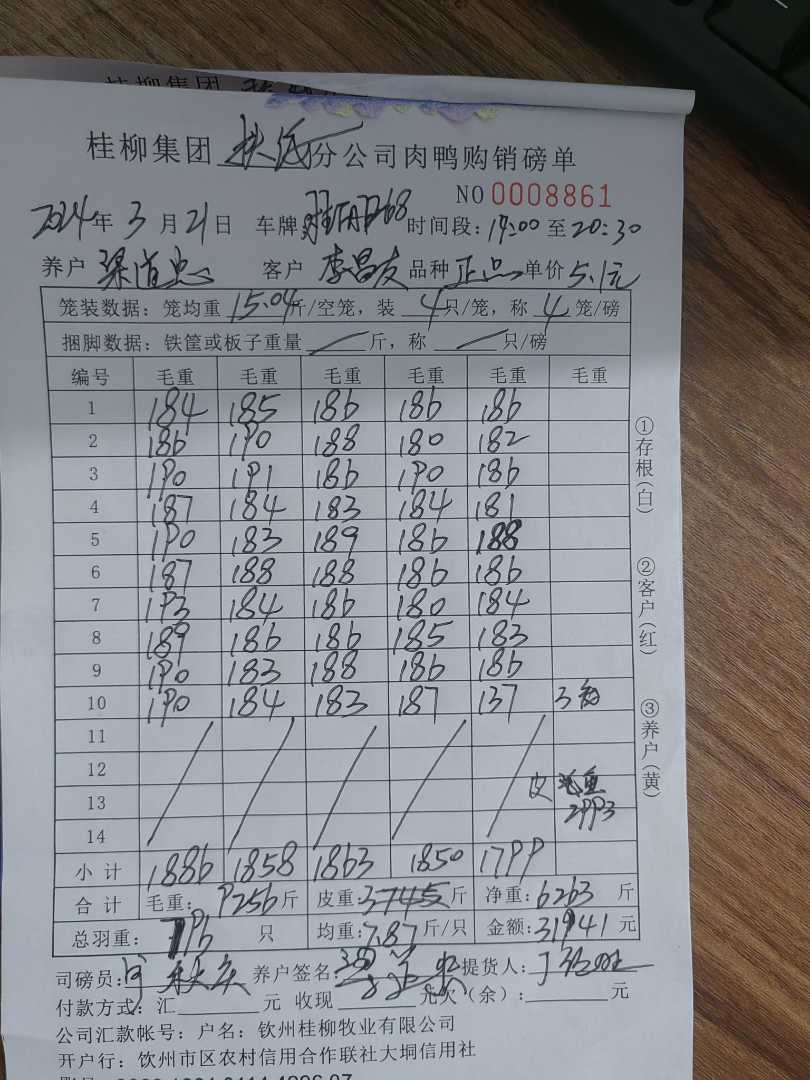 桂柳集团
桂柳集团 分公司肉鸭购销磅单
NO 0008861
2024年 3月 21日 车牌 时间段: 17:00 至 20:30
养户 梁道忠 客户 李昌友 品种 正品 单价 5.1元
笼装数据: 笼均重 15.04斤/空笼, 装 4只/笼, 称 4 笼/磅
捆脚数据: 铁筐或板子重量 斤, 称 只/磅
编号 毛重 毛重 毛重 毛重 毛重 毛重
1 184 185 186 186 186
2 186 190 188 180 182
3 190 191 186 190 186
4 187 184 183 184 181
5 190 183 189 186 188
6 187 188 188 186 186
7 193 184 186 180 184
8 189 186 186 185 183
9 190 183 188 186 186
10 190 184 183 187 137 3
11
12
13 皮 重
14 2993
小计 1886 1858 1863 1850 1799
合计 毛重: 9256斤 皮重: 3745斤 净重: 6263 斤
总羽重: 796 只 均重: 7.87斤/只 金额: 31941 元
司磅员: 养户签名: 提货人:
付款方式: 汇 元 收现 元欠(余): 元
公司汇款帐号: 户名: 钦州桂柳牧业有限公司
开户行: 钦州市区农村信用合作联社大垌信用社
①存根(白)
②客户(红)
③养户(黄)